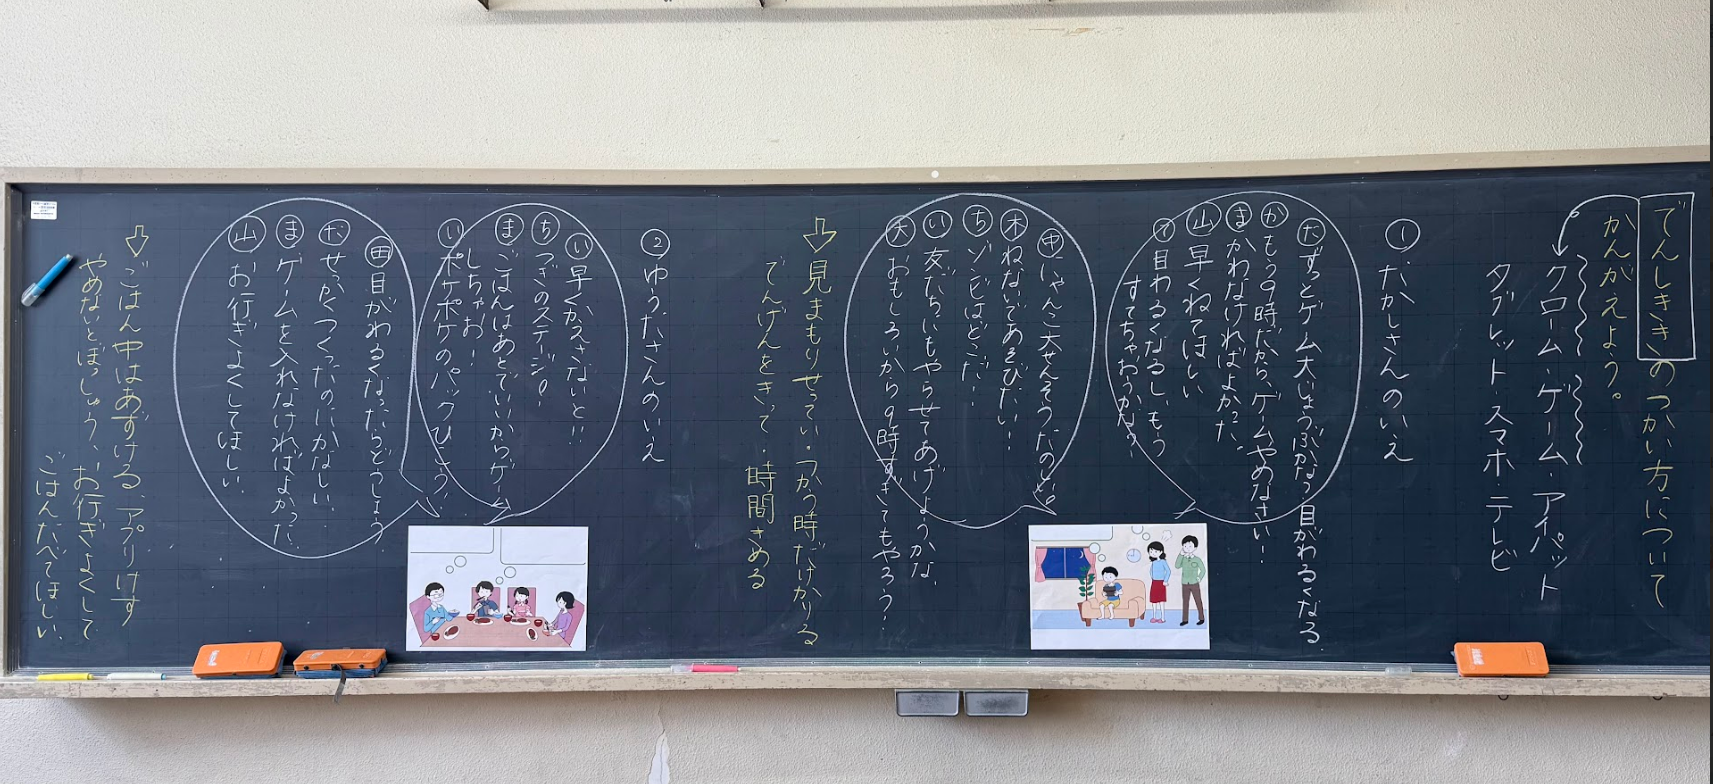 でんしききのつかい方について
かんがえよう。
クローム・ゲーム・アイパット
タブレット・スマホ・テレビ
① たかしさんのいえ
た ずっとゲーム大じょうぶかな?目がわるくなる
か もう9時だから、ゲームやめなさい!
ま かわなければよかった。
山 早くねてほしい
て 目わるくなるし、もう
すてちゃおうかな?
中 にゃんこ大せんそうたのしい!
木 ねないであそびたい!
ち ゾンビはどこだ!
い 友だちにもやらせてあげようかな。
大 おもしろいから9時すぎてもやろう?
⇩見まもりせってい・つかう時だけかりる
でんげんをきって・時間きめる
② ゆうたさんのいえ
い 早くかえさないと!!
ち つぎのステージ!
ま ごはんはあとでいいからゲーム
しちゃお!
い ポケポケのパックひこう!
田 目がわるくなったらどうしよう
だ せっかくつくったのにかなしい。
ま ゲームを入れなければよかった。
山 お行ぎよくしてほしい。
⇩ごはん中はあずける、アプリけす
やめないとぼっしゅう、お行ぎよくして
ごはんたべてほしい。